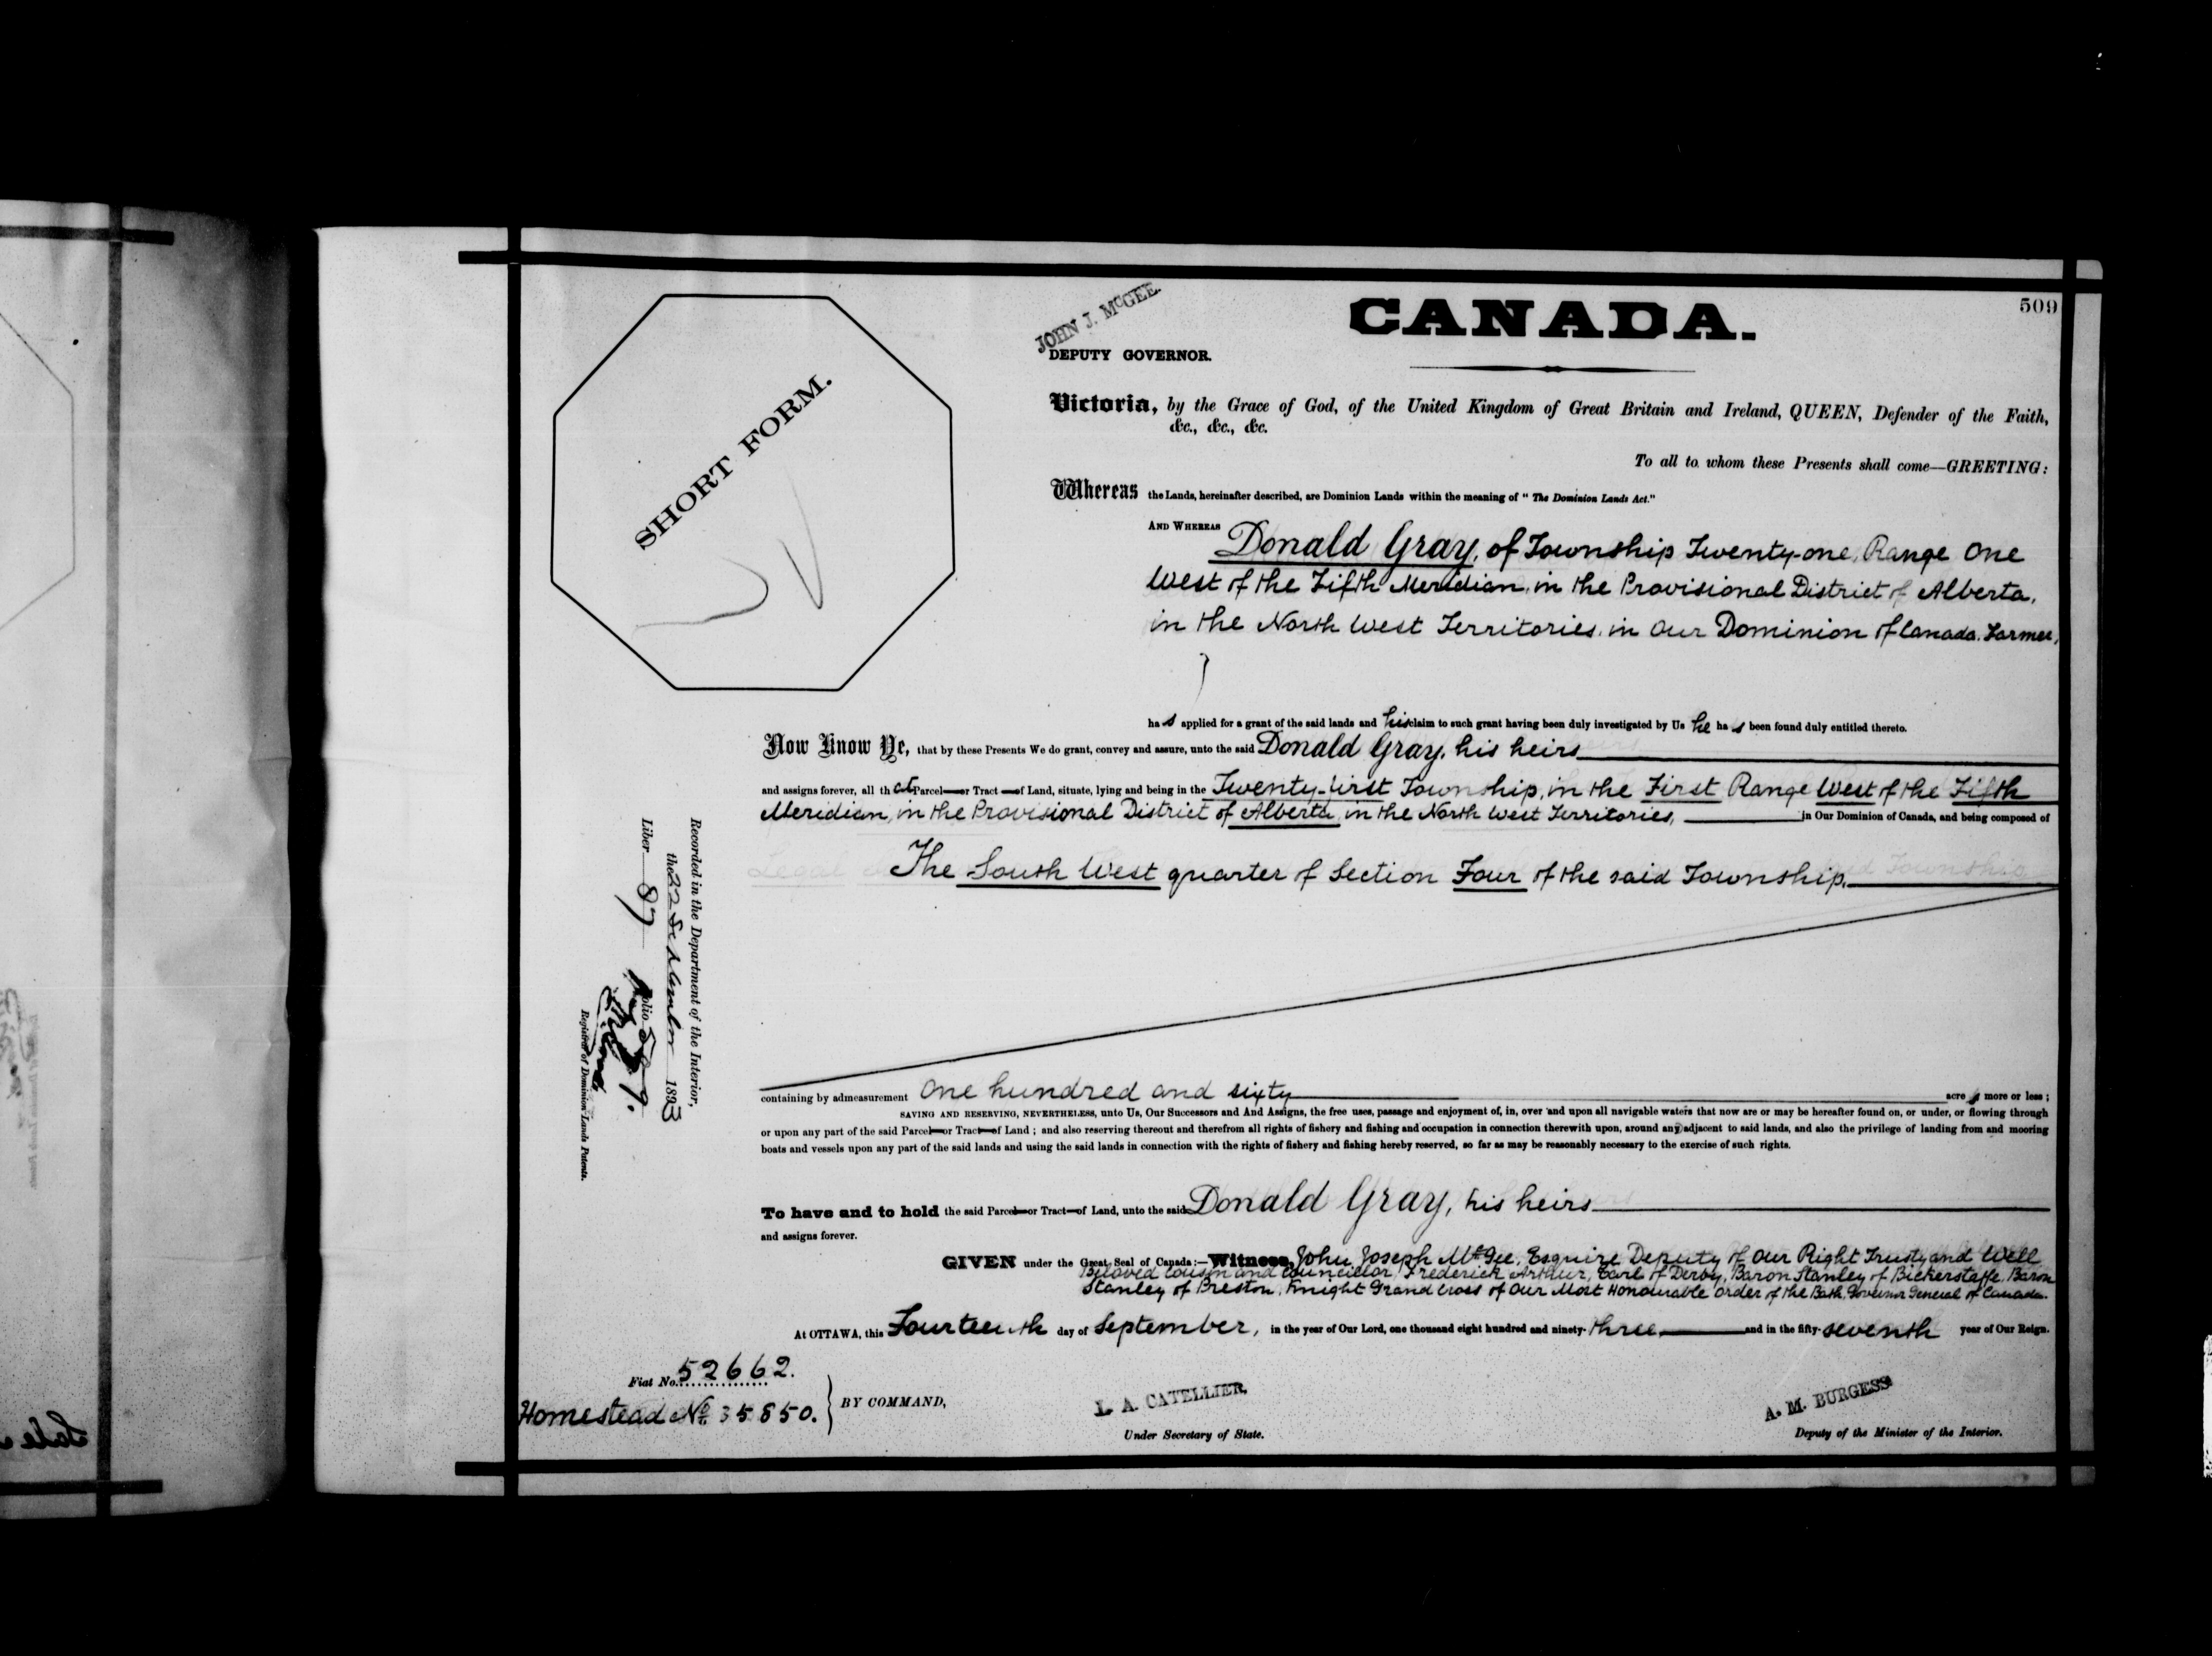 509
CANADA.
JOHN J. McGEE.
DEPUTY GOVERNOR.
SHORT FORM.
Victoria, by the Grace of God, of the United Kingdom of Great Britain and Ireland, QUEEN, Defender of the Faith,
&c., &c., &c.
To all to whom these Presents shall come—GREETING:
Whereas the Lands, hereinafter described, are Dominion Lands within the meaning of "The Dominion Lands Act."
AND WHEREAS Donald Gray, of Township Twenty-one, Range One
West of the Fifth Meridian, in the Provisional District of Alberta,
in the North West Territories, in Our Dominion of Canada, Farmer,
has applied for a grant of the said lands and his claim to such grant having been duly investigated by Us he has been found duly entitled thereto.
Now Know Ye, that by these Presents We do grant, convey and assure, unto the said Donald Gray, his heirs
and assigns forever, all that Parcel or Tract of Land, situate, lying and being in the Twenty-first Township, in the First Range West of the Fifth
Meridian, in the Provisional District of Alberta, in the North West Territories, in Our Dominion of Canada, and being composed of
The South West quarter of Section Four of the said Township,
containing by admeasurement One hundred and sixty acres more or less;
SAVING AND RESERVING, NEVERTHELESS, unto Us, Our Successors and And Assigns, the free uses, passage and enjoyment of, in, over and upon all navigable waters that now are or may be hereafter found on, or under, or flowing through
or upon any part of the said Parcel or Tract of Land; and also reserving thereout and therefrom all rights of fishery and fishing and occupation in connection therewith upon, around any adjacent to said lands, and also the privilege of landing from and mooring
boats and vessels upon any part of the said lands and using the said lands in connection with the rights of fishery and fishing hereby reserved, so far as may be reasonably necessary to the exercise of such rights.
To have and to hold the said Parcel or Tract of Land, unto the said Donald Gray, his heirs
and assigns forever.
GIVEN under the Great Seal of Canada:—Witness, John Joseph McGee, Esquire Deputy of Our Right Trusty and Well
Beloved Cousin and Councillor, Frederick Arthur, Earl of Derby, Baron Stanley of Bickerstaffe, Baron
Stanley of Preston, Knight Grand Cross of Our Most Honourable Order of the Bath, Governor General of Canada.
At OTTAWA, this Fourteenth day of September, in the year of Our Lord, one thousand eight hundred and ninety-three and in the fifty-seventh year of Our Reign.
Fiat No. 52662.
Homestead No. 35850.
BY COMMAND,
L. A. CATELLIER,
Under Secretary of State.
A. M. BURGESS
Deputy of the Minister of the Interior.
Recorded in the Department of the Interior,
the 22 September 1893
Liber 87 Folio 509.
Registrar of Dominion Lands Patents.